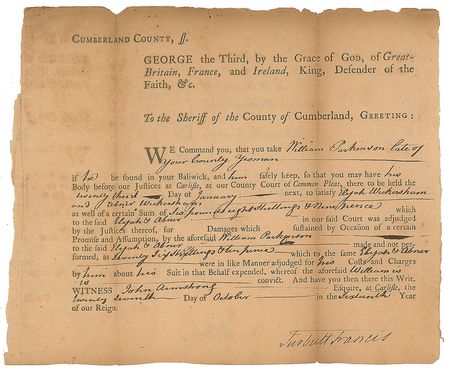 CUMBERLAND COUNTY, ss.
GEORGE the Third, by the Grace of GOD, of Great-
Britain, France, and Ireland, King, Defender of the
Faith, &c.
To the Sheriff of the County of Cumberland, GREETING:
WE Command you, that you take William Parkinson late of
Your County Yeoman
if he be found in your Bailiwick, and him safely keep, so that you may have his
Body before our Justices at Carlisle, at our County Court of Common Pleas, there to be held the
twenty third Day of January next, to satisfy Elijah Wickersham
and Abner Wickersham
as well of a certain Sum of Six pounds eight Shillings & Nine pence which
to the said Elijah & Abner in our said Court was adjudged
by the Justices thereof, for Damages which sustained by Occasion of a certain
Promise and Assumption, by the aforesaid William Parkinson
to the said Elijah & Abner made and not per-
formed, as Seventy Six Shillings & pence which to the same Elijah & Abner
were in like Manner adjudged for his Costs and Charges
by him about his Suit in that Behalf expended, whereof the aforesaid William is
convict. And have you then there this Writ.
WITNESS John Armstrong Esquire, at Carlisle, the
twenty seventh Day of October in the Sixteenth Year
of our Reign.
Turbutt Francis